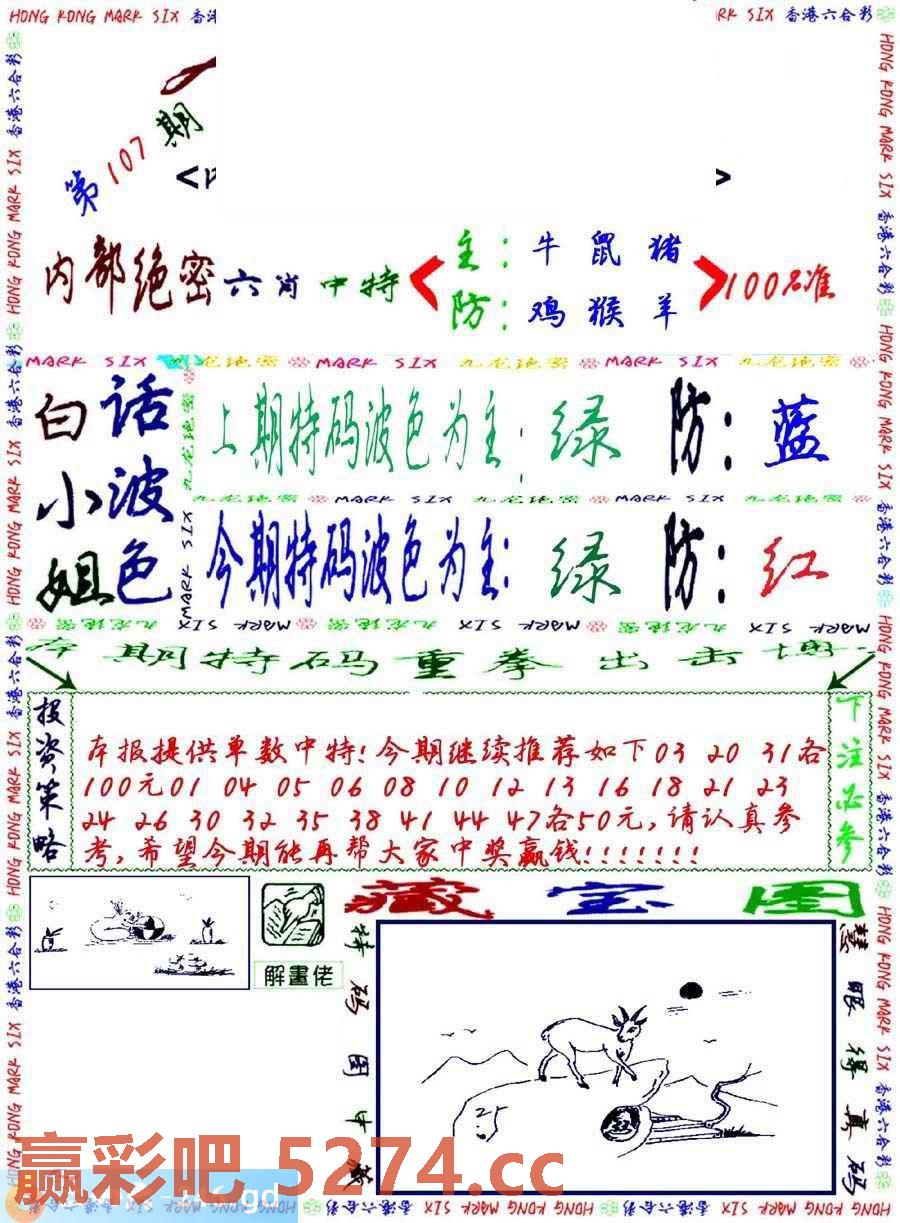 HONG KONG MARK SIX 香港六合彩
第107期
内部绝密六肖中特
主：牛 鼠 猪
防：鸡 猴 羊
100%准
MARK SIX 九龙绝密 MARK SIX 九龙绝密 MARK SIX 九龙绝密
白话
小波
姐色
上期特码波色为主：绿 防：蓝
九龙绝密 MARK SIX 九龙绝密 MARK SIX
今期特码波色为主：绿 防：红
MARK SIX 九龙绝密 MARK SIX 九龙绝密 MARK SIX
期特码重拳出击
投资策略
本报提供单数中特！今期继续推荐如下03 20 31各
100元01 04 05 06 08 10 12 13 16 18 21 23
24 26 30 32 35 38 41 44 47各50元，请认真参
考，希望今期能再帮大家中奖赢钱！！！！！！！
下注必参
藏宝图
解畫佬
特码图中
慧眼得真码
赢彩吧 5274.cc
HONG KONG MARK SIX 香港六合彩